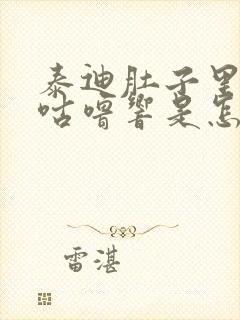 泰迪肚子里
咕噜响是怎
雷湛